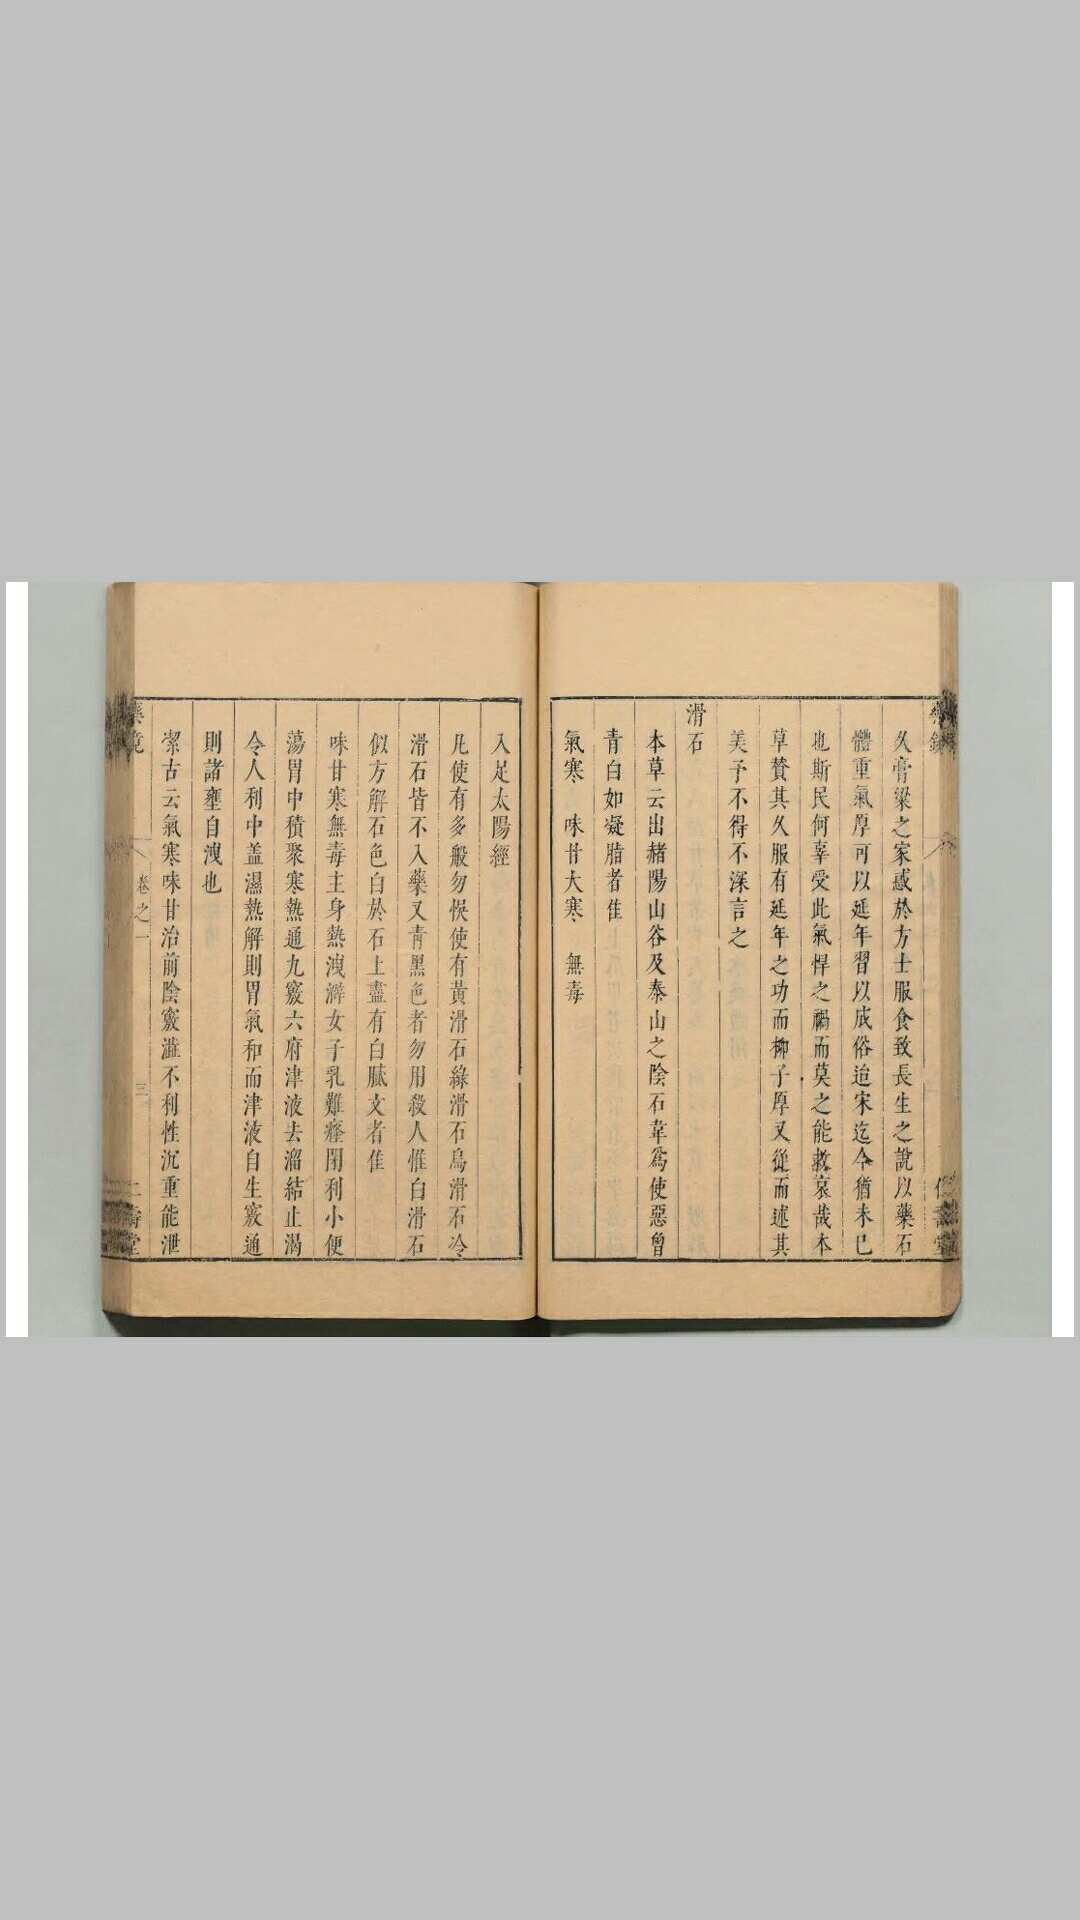 久膏粱之家惑於方士服食致長生之說以藥石
體重氣厚可以延年習以成俗迨宋迄今猶未已
也斯民何辜受此氣悍之禍而莫之能救哀哉本
草贊其久服有延年之功而柳子厚又從而述其
美予不得不深言之
滑石
本草云出赭陽山谷及泰山之陰石韋爲使惡曾
青白如凝脂者佳
氣寒 味甘大寒 無毒
入足太陽經
凡使有多般勿悞使有黃滑石綠滑石烏滑石冷
滑石皆不入藥又青黑色者勿用殺人惟白滑石
似方解石色白於石上畫有白膩文者佳
味甘寒無毒主身熱洩澼女子乳難癃閉利小便
蕩胃中積聚寒熱通九竅六府津液去溜結止渴
令人利中盖濕熱解則胃氣和而津液自生竅通
則諸壅自洩也
潔古云氣寒味甘治前陰竅澁不利性沉重能泄
卷之一
三